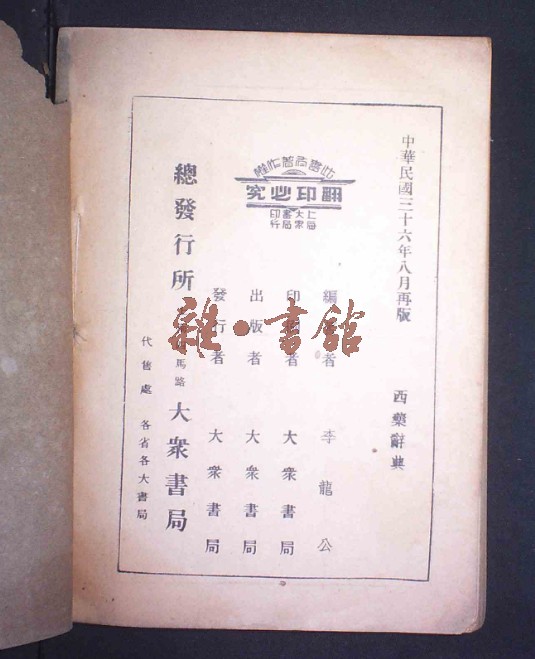 中華民國三十六年八月再版
西藥辭典
此書有著作權
翻印必究
上海
大眾
書局
印行
編 者 李龍公
印 者 大眾書局
出版者 大眾書局
發行者 大眾書局
總發行所 馬路 大眾書局
代售處 各省各大書局
雜·書館